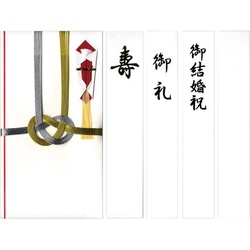 寿
御礼
御結婚祝